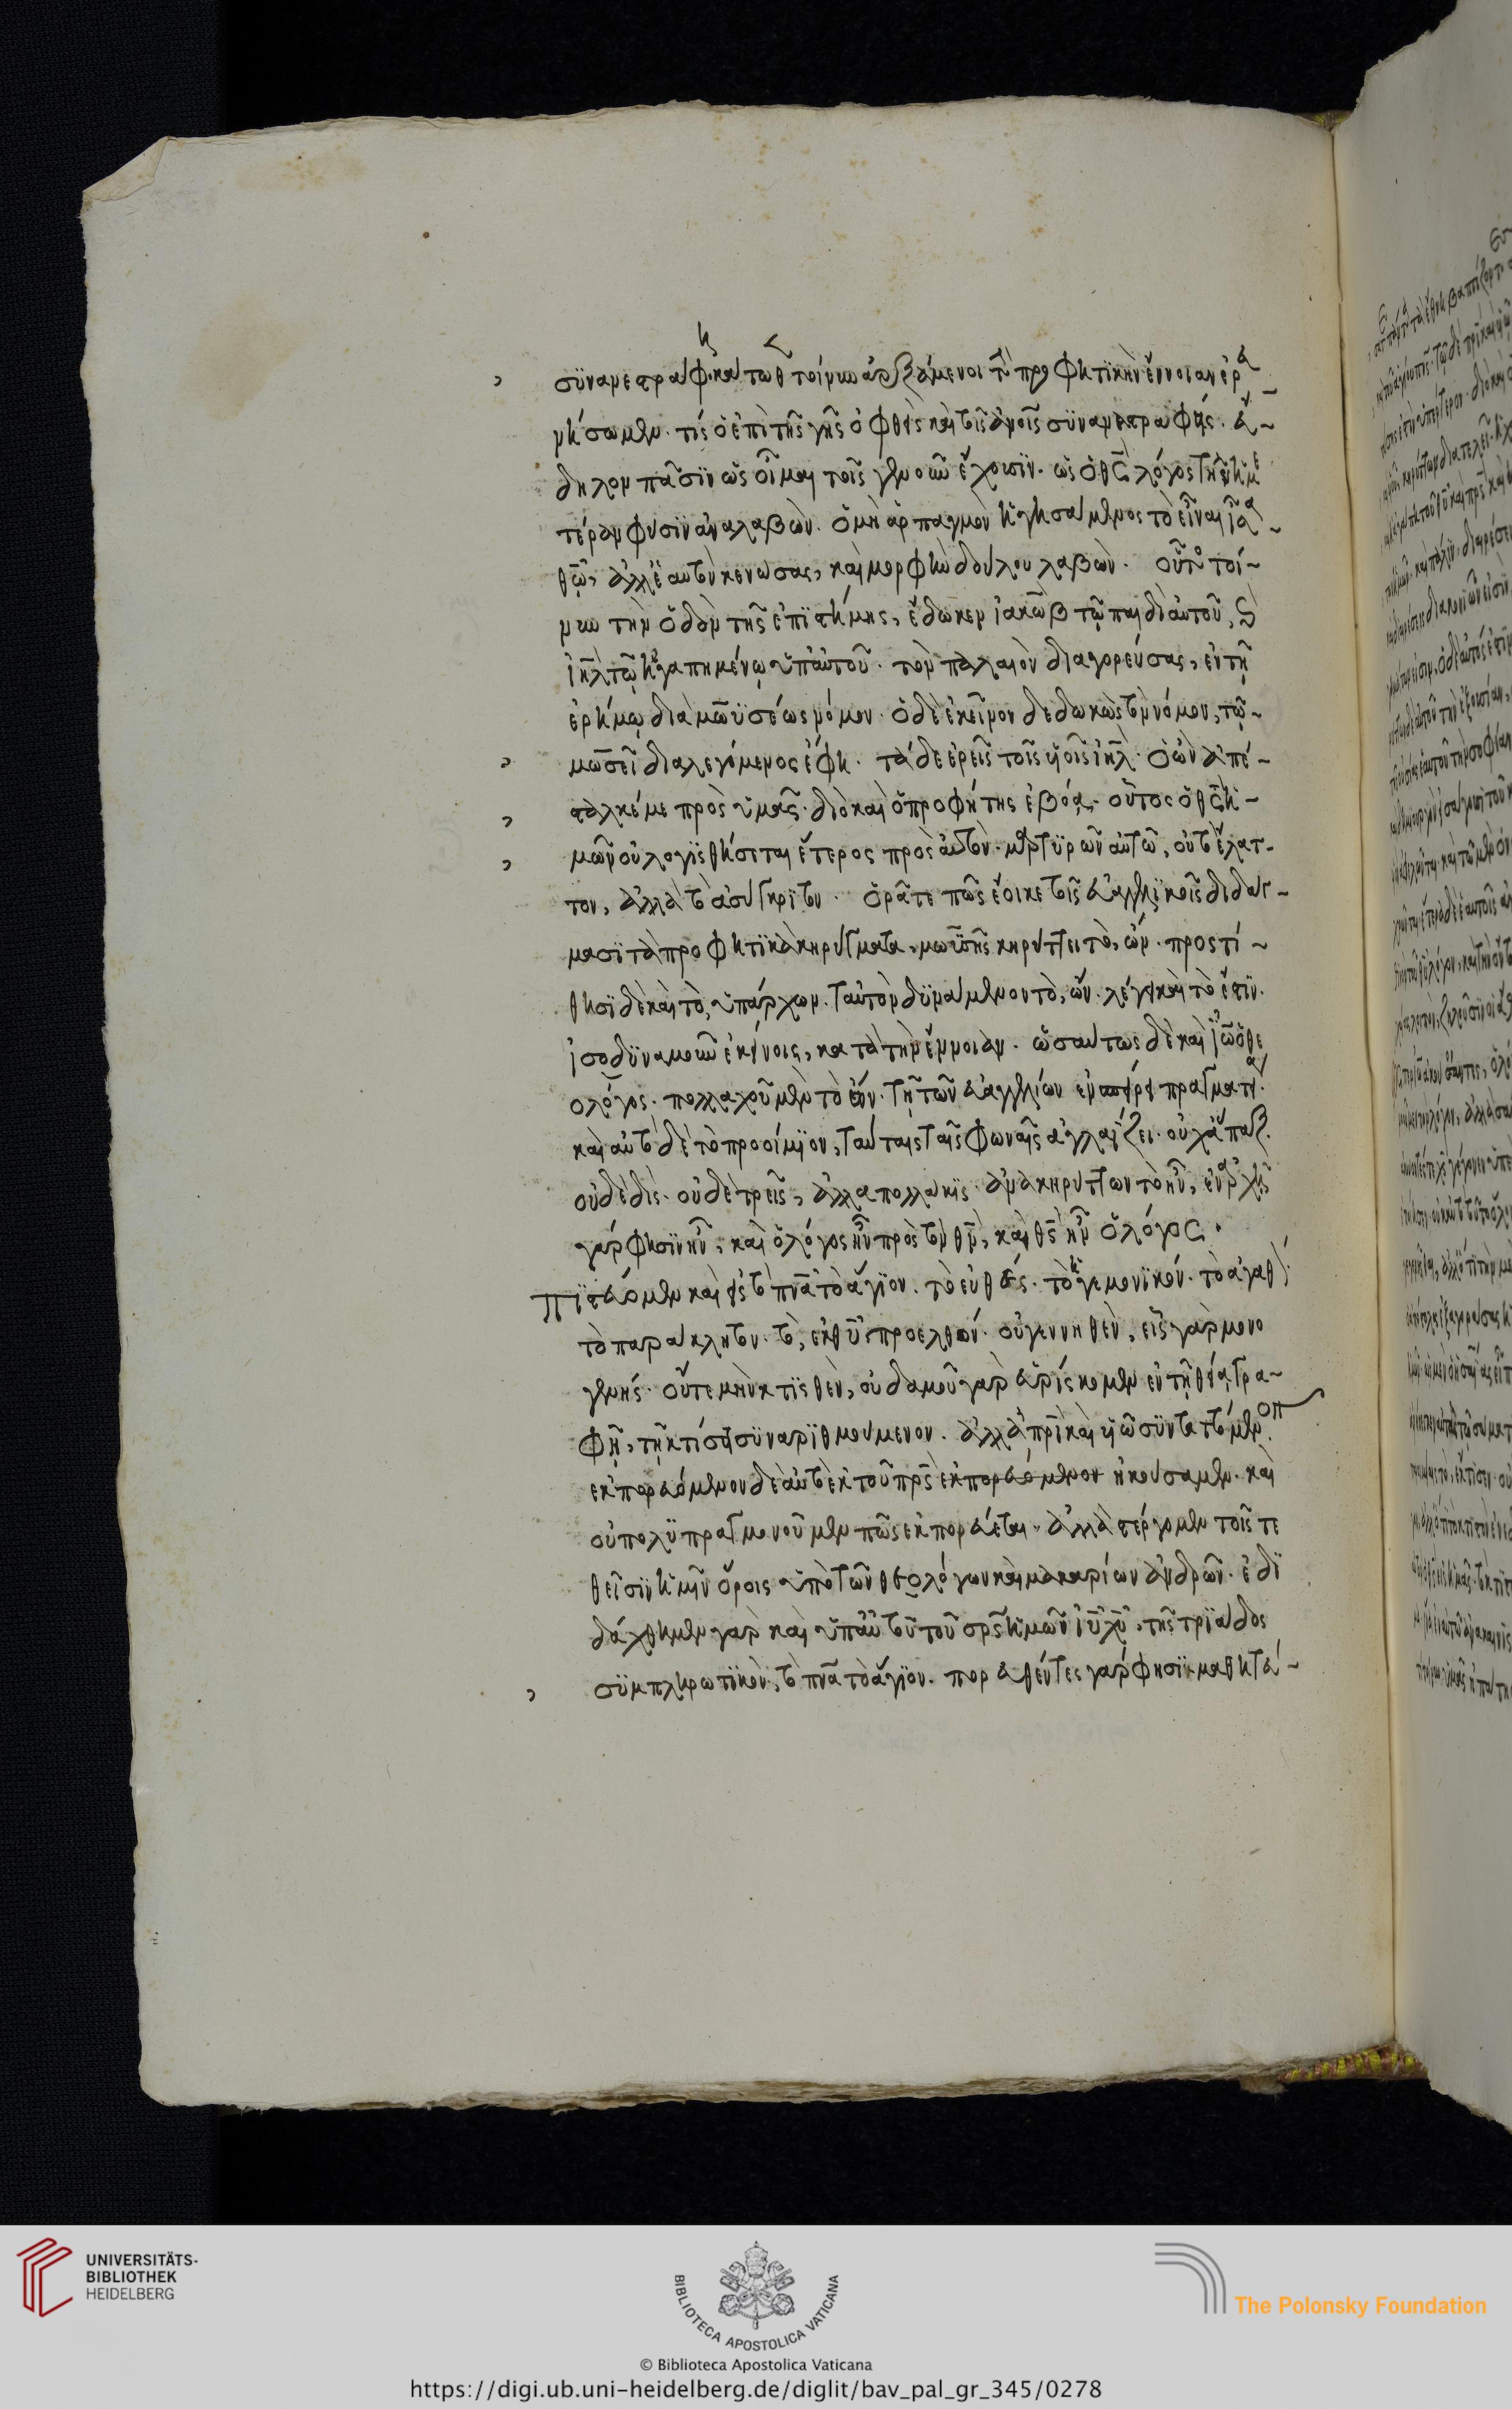 συνανεστράφη· καὶ τοῦ τοίνυν ἀρξάμενοι τὴν προφητικὴν ἔννοιαν ἑρμ
νήσωμεν· τίς ὁ ἐπὶ τῆς γῆς ὀφθεὶς καὶ τοῖς ἀνοις συναναστραφείς· εὔ-
δηλον πᾶσιν ὡς οἶμαι τοῖς γε νοῦν ἔχουσιν· ὡς ὁ θς λόγος τὴν ἡμε
τέραν φύσιν ἀναλαβών. ὁ μὴ ἁρπαγμὸν ἡγησάμενος τὸ εἶναι ἴσα
θῶ, ἀλλ' ἑαυτὸν κενώσας, καὶ μορφὴν δούλου λαβών. οὗτος τοί-
νυν τὴν ὁδὸν τῆς ἐπιστήμης, ἔδωκεν ἰακὼβ τῷ παιδὶ αὐτοῦ, καὶ
ιηλ τῷ ἠγαπημένῳ ὑπ' αὐτοῦ· τὸν παλαιὸν διαγορεύσας, ἐν τῇ
ἐρήμῳ διὰ μωϋσέως νόμον· ὁ δὲ ἐκεῖνον δεδωκὼς τὸν νόμον, τῷ
μωσεῖ διαλεγόμενος ἔφη· τάδε ἐρεῖς τοῖς υἱοῖς ιηλ· ὁ ὢν ἀπέ-
σταλκέ με πρὸς ὑμᾶς· διὸ καὶ ὁ προφήτης ἐβόα· οὗτος ὁ θς ἡ-
μῶν οὐ λογισθήσεται ἕτερος πρὸς αὐτόν· μαρτυρῶν αὐτῷ, οὐ τὸ ἔλατ-
τον, ἀλλὰ τὸ ἀσύγκριτον· ὁρᾶτε πῶς ἔοικε τοῖς εὐαγγελικοῖς διδάγ-
μασι τὰ προφητικὰ κηρύγματα· μωϋσῆς κηρύττει τὸ, ὤν· προστί-
θησι δὲ καὶ τὸ, ὑπάρχων· ταὐτὸν δυνάμενον τὸ, ὤν· λέγει καὶ τὸ ἔστιν·
ἰσοδυναμοῦν ἐκείνοις, κατὰ τὴν ἔννοιαν· ὡσαύτως δὲ καὶ ἰῶ ὁ θεο
ολόγος· πολλαχοῦ μὲν τὸ ὤν· τῇ τῶν εὐαγγελίων ἐνσπείρει πραγματεία·
καὶ αὐτὸ δὲ τὸ προοίμιον, ταύταις ταῖς φωναῖς ἀγλαΐζει· οὐχ ἅπαξ·
οὐδὲ δίς· οὐδὲ τρεῖς, ἀλλὰ πολλάκις ἀνακηρύττων τὸ ἦν, ἐν ἀρχῇ
γάρ φησιν ἦν, καὶ ὁ λόγος ἦν πρὸς τὸν θν, καὶ θς ἦν ὁ λόγος·
Πιστεύομεν καὶ εἰς τὸ πνα τὸ ἅγιον· τὸ εὐθές· τὸ ἡγεμονικόν· τὸ ἀγαθόν·
τὸ παράκλητον· τὸ, ἐκ θυ προελθόν· οὐ γεννηθὲν, εἷς γὰρ μονο
γενής· οὔτε μὴν κτισθὲν, οὐδαμοῦ γὰρ εὑρίσκομεν ἐν τῇ θείᾳ γρα-
φῇ, τῇ κτίσει συναριθμούμενον. ἀλλὰ πρὶ καὶ υἱῷ συντεταγμένον
ἐκπορευόμενον δὲ αὐτὸ ἐκ τοῦ πρς ἐκπορευόμενον ἠκούσαμεν. καὶ
οὐ πολυπραγμονοῦμεν πῶς ἐκπορεύεται, ἀλλὰ στέργομεν τοῖς τε
θεῖσιν ἡμῖν ὅροις ὑπὸ τῶν θεολόγων καὶ μακαρίων ἀνδρῶν· ἐδι
δάχθημεν γὰρ καὶ ὑπ' αὐτοῦ τοῦ σρς ἡμῶν ιυ χυ, τῆς τριάδος
συμπληρωτικὸν, τὸ πνα τὸ ἅγιον. πορευθέντες γάρ φησιν μαθητεύ-
UNIVERSITÄTS-
BIBLIOTHEK
HEIDELBERG
BIBLIOTECA APOSTOLICA VATICANA
© Biblioteca Apostolica Vaticana
The Polonsky Foundation
https://digi.ub.uni-heidelberg.de/diglit/bav_pal_gr_345/0278